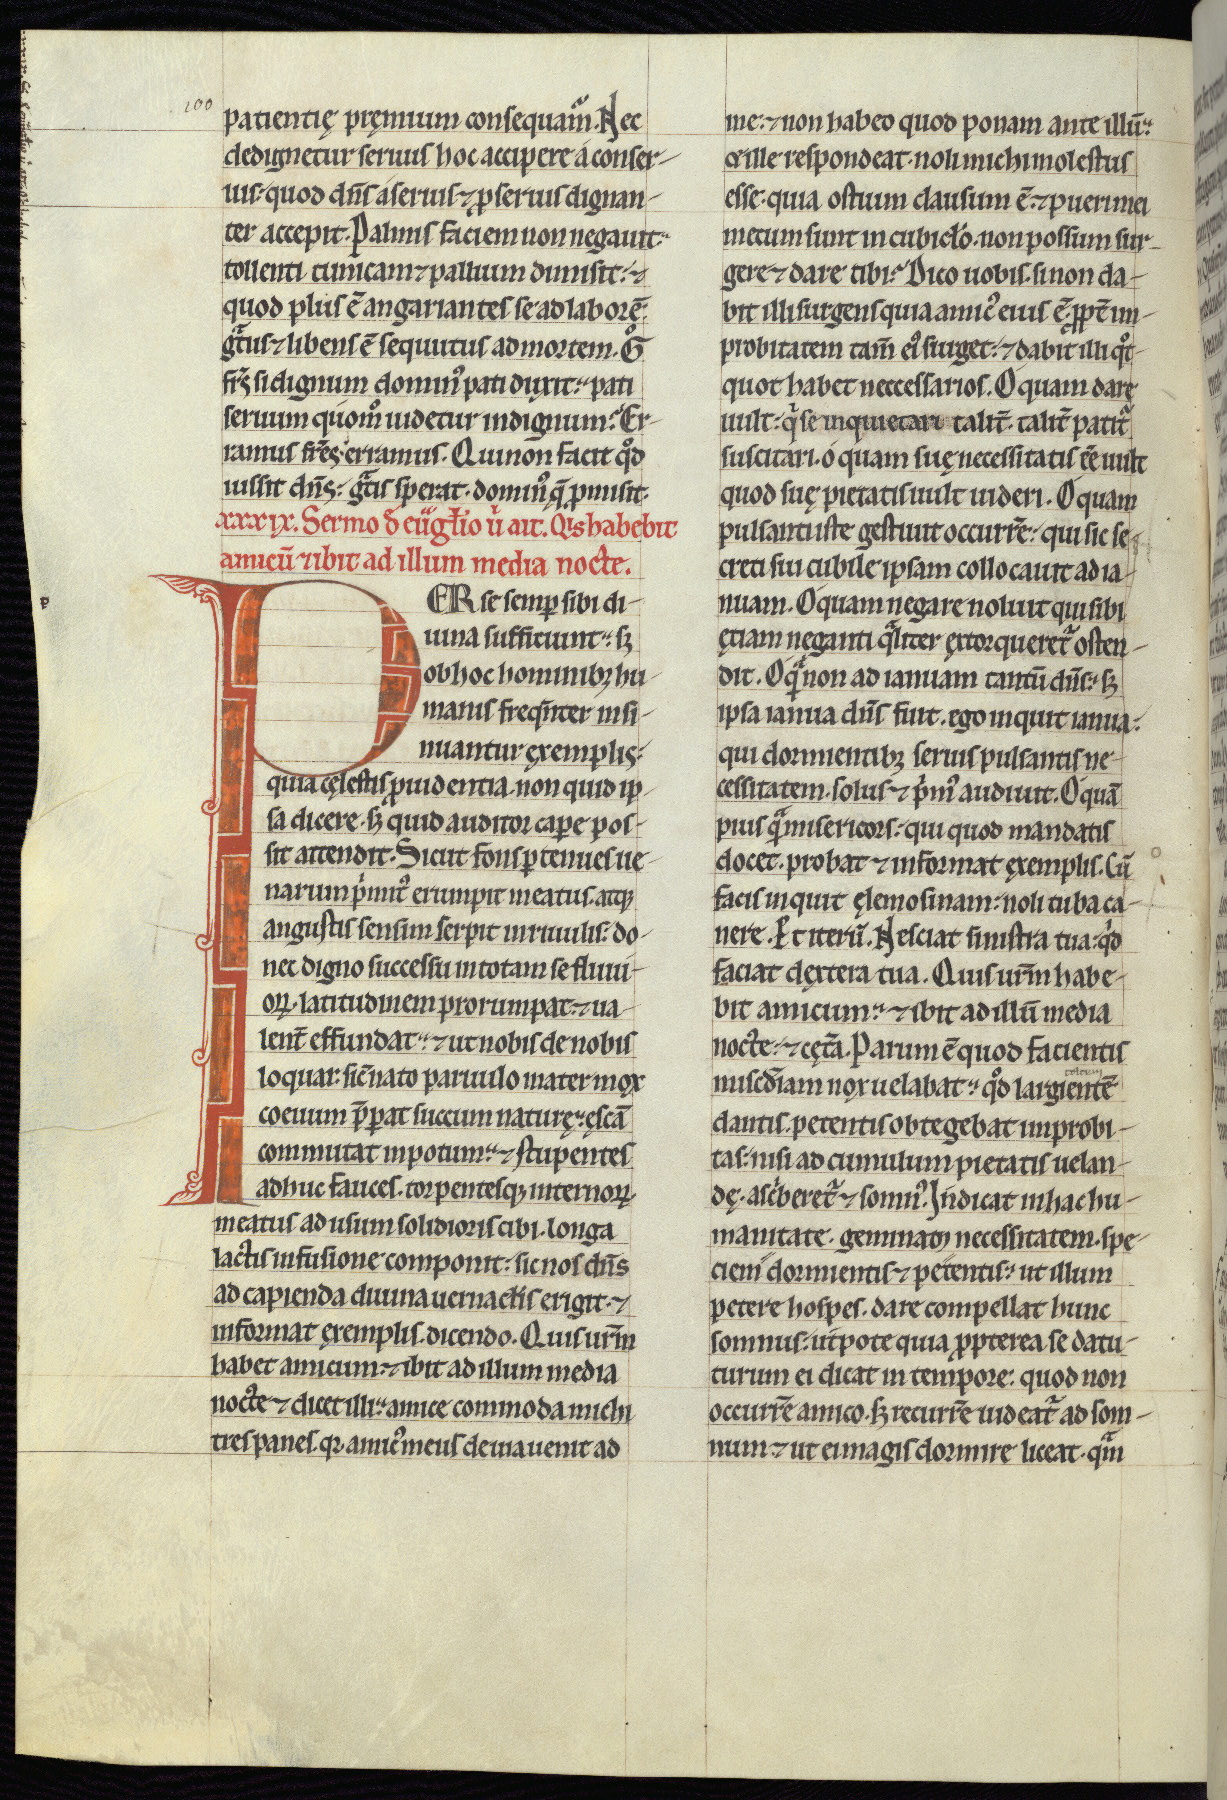 200
patientię pręmium consequam̃. Nec
dedignetur seruus hoc accipere a conser-
uis. quod dn̄s a seruis ⁊ ꝓ seruis dignan-
ter accepit. Palmis faciem non negauit.
tollenti tunicam ⁊ pallium dimisit. ⁊
quod plus ē angariantes se ad laborē.
gr̃atus ⁊ libens ē sequutus ad mortem. G̊
fr̄s si dignum domin᷒ pati duxit. pati
seruum quom̊ uidetur indignum. Er-
ramus fr̄s erramus. Qui non facit qd̊
iussit dn̄s. gr̃atis sperat. domin᷒ q̄ ꝓmisit.
xxxix. Sermo d̄ eūg̃lio ů ait. Qͥs habebit
amicū ⁊ ibit ad illum media nocte.
PER se semꝑ sibi di-
uina sufficiunt. sꝫ
ob hoc hominibꝫ hu-
manis freqn̄ter insi-
nuantur ęxemplis.
quia cęlestis ꝓuidentia. non quid ip-
sa dicere. sꝫ quid auditor caꝑe pos-
sit attendit. Sicut fons ꝑ tenues ue-
narum pͥmit᷒ erumpit meatus. atqꝫ
angustis sensim serpit in riuulis. do-
nec digno successu in totam se fluui-
oꝝ. latitudinem prorumpat. ⁊ ua-
lent̃ effundat. ⁊ ut nobis de nobis
loquar. sic nato paruulo mater mox
coeuum p̄parat succum naturę. ęscā
commutat in potum. ⁊ stupentes
adhuc fauces. torpentesqꝫ internoꝝ
meatus ad usum solidioris cibi. longa
lactis infusione componit. sic nos dn̄s
ad capienda diuina uernaclis erigit. ⁊
informat ęxemplis. dicendo. Quis ur̄m
habet amicum ⁊ ibit ad illum media
nocte ⁊ dicet illi. amice commoda michi
tres panes. qꝛ amic᷒ meus de uia uenit ad
me. ⁊ non habeo quod ponam ante illū.
ille respondeat. noli michi molestus
esse. quia ostium clausum ē. ⁊ pueri mei
mecum sunt in cubiclo. non possum sur-
gere ⁊ dare tibi. Dico uobis. si non da-
bit illi surgens quia amic᷒ eius ē. ꝓpt̃ im-
probitatem tam̄ ei᷒ surget. ⁊ dabit illi qͦt-
quot habet neccessarios. O quam dare
uult. qͥ se inquietari talit̃. talit̃ patit᷑
suscitari. o quam suę necessitatis ēē uult
quod suę pietatis uult uideri. O quam
pulsanti iste gestiuit occurr̄e. qui sic se-
creti sui cubile ipsam collocauit ad ia-
nuam. O quam negare noluit qui sibi
ętiam neganti qͣliter ęxtorqueret᷑ osten-
dit. O qͣ non ad ianuam tantū dn̄s. sꝫ
ipsa ianua dn̄s fuit. ego inquit ianua.
qui dormientibꝫ seruis pulsantis ne-
cessitatem. solus ⁊ pͥm᷒ audiuit. O quā
pius qͣ misericors. qui quod mandatis
docet. probat ⁊ informat ęxemplis. Cū
facis inquit ęlemosinam. noli tuba ca-
nere. Et iterū. Nesciat sinistra tua. qͥd
faciat dęxtera tua. Quis ur̄m habe-
bit amicum. ⁊ ibit ad illū media
nocte. ⁊ cęt̃a. Parum ē quod facientis
miscd̄iam nox uelabat. qd̊ largientē
dantis. petentis obtegebat improbi-
tas. nisi ad cumulum pietatis uelan-
dę. ascͥberet᷑ ⁊ somn᷒. Indicat in hac hu-
manitate. geminatā necessitatem. spe-
ciem dormientis ⁊ petentis. ut illum
petere hospes. dare compellat hunc
somnus. utpote quia ꝓpterea se datu-
turum ei dicat in tempore. quod non
occurr̄e amico. sꝫ recurr̄e uideat᷑ ad som-
num. ⁊ ut ei magis dormire liceat. qͣm